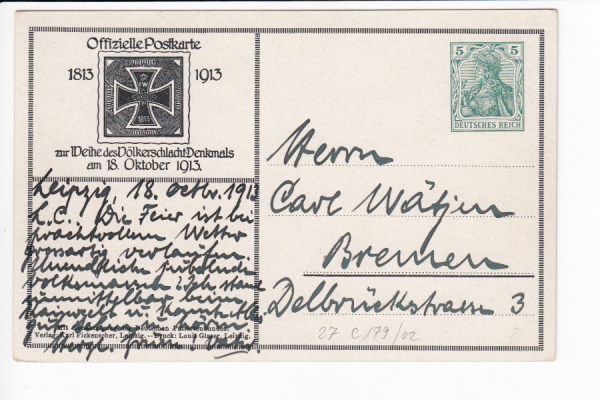 Offizielle Postkarte
1813 1913
1813
zur Weihe des Völkerschlacht-Denkmals
am 18. Oktober 1913.
5 5
DEUTSCHES REICH
Leipzig, 18. Octbr. 1913
L. C. Die Feier ist bei
prachtvollem Wetter
grossartig verlaufen.
jubelnde
Volksmenge! Ich stand
unmittelbar beim
Verlag: Karl Pickenhder, Leipzig. — Druck: Louis Glaser, Leipzig.
Herrn
Carl Wätjen
Bremen
Delbrückstrasse 3
27 C 179/02